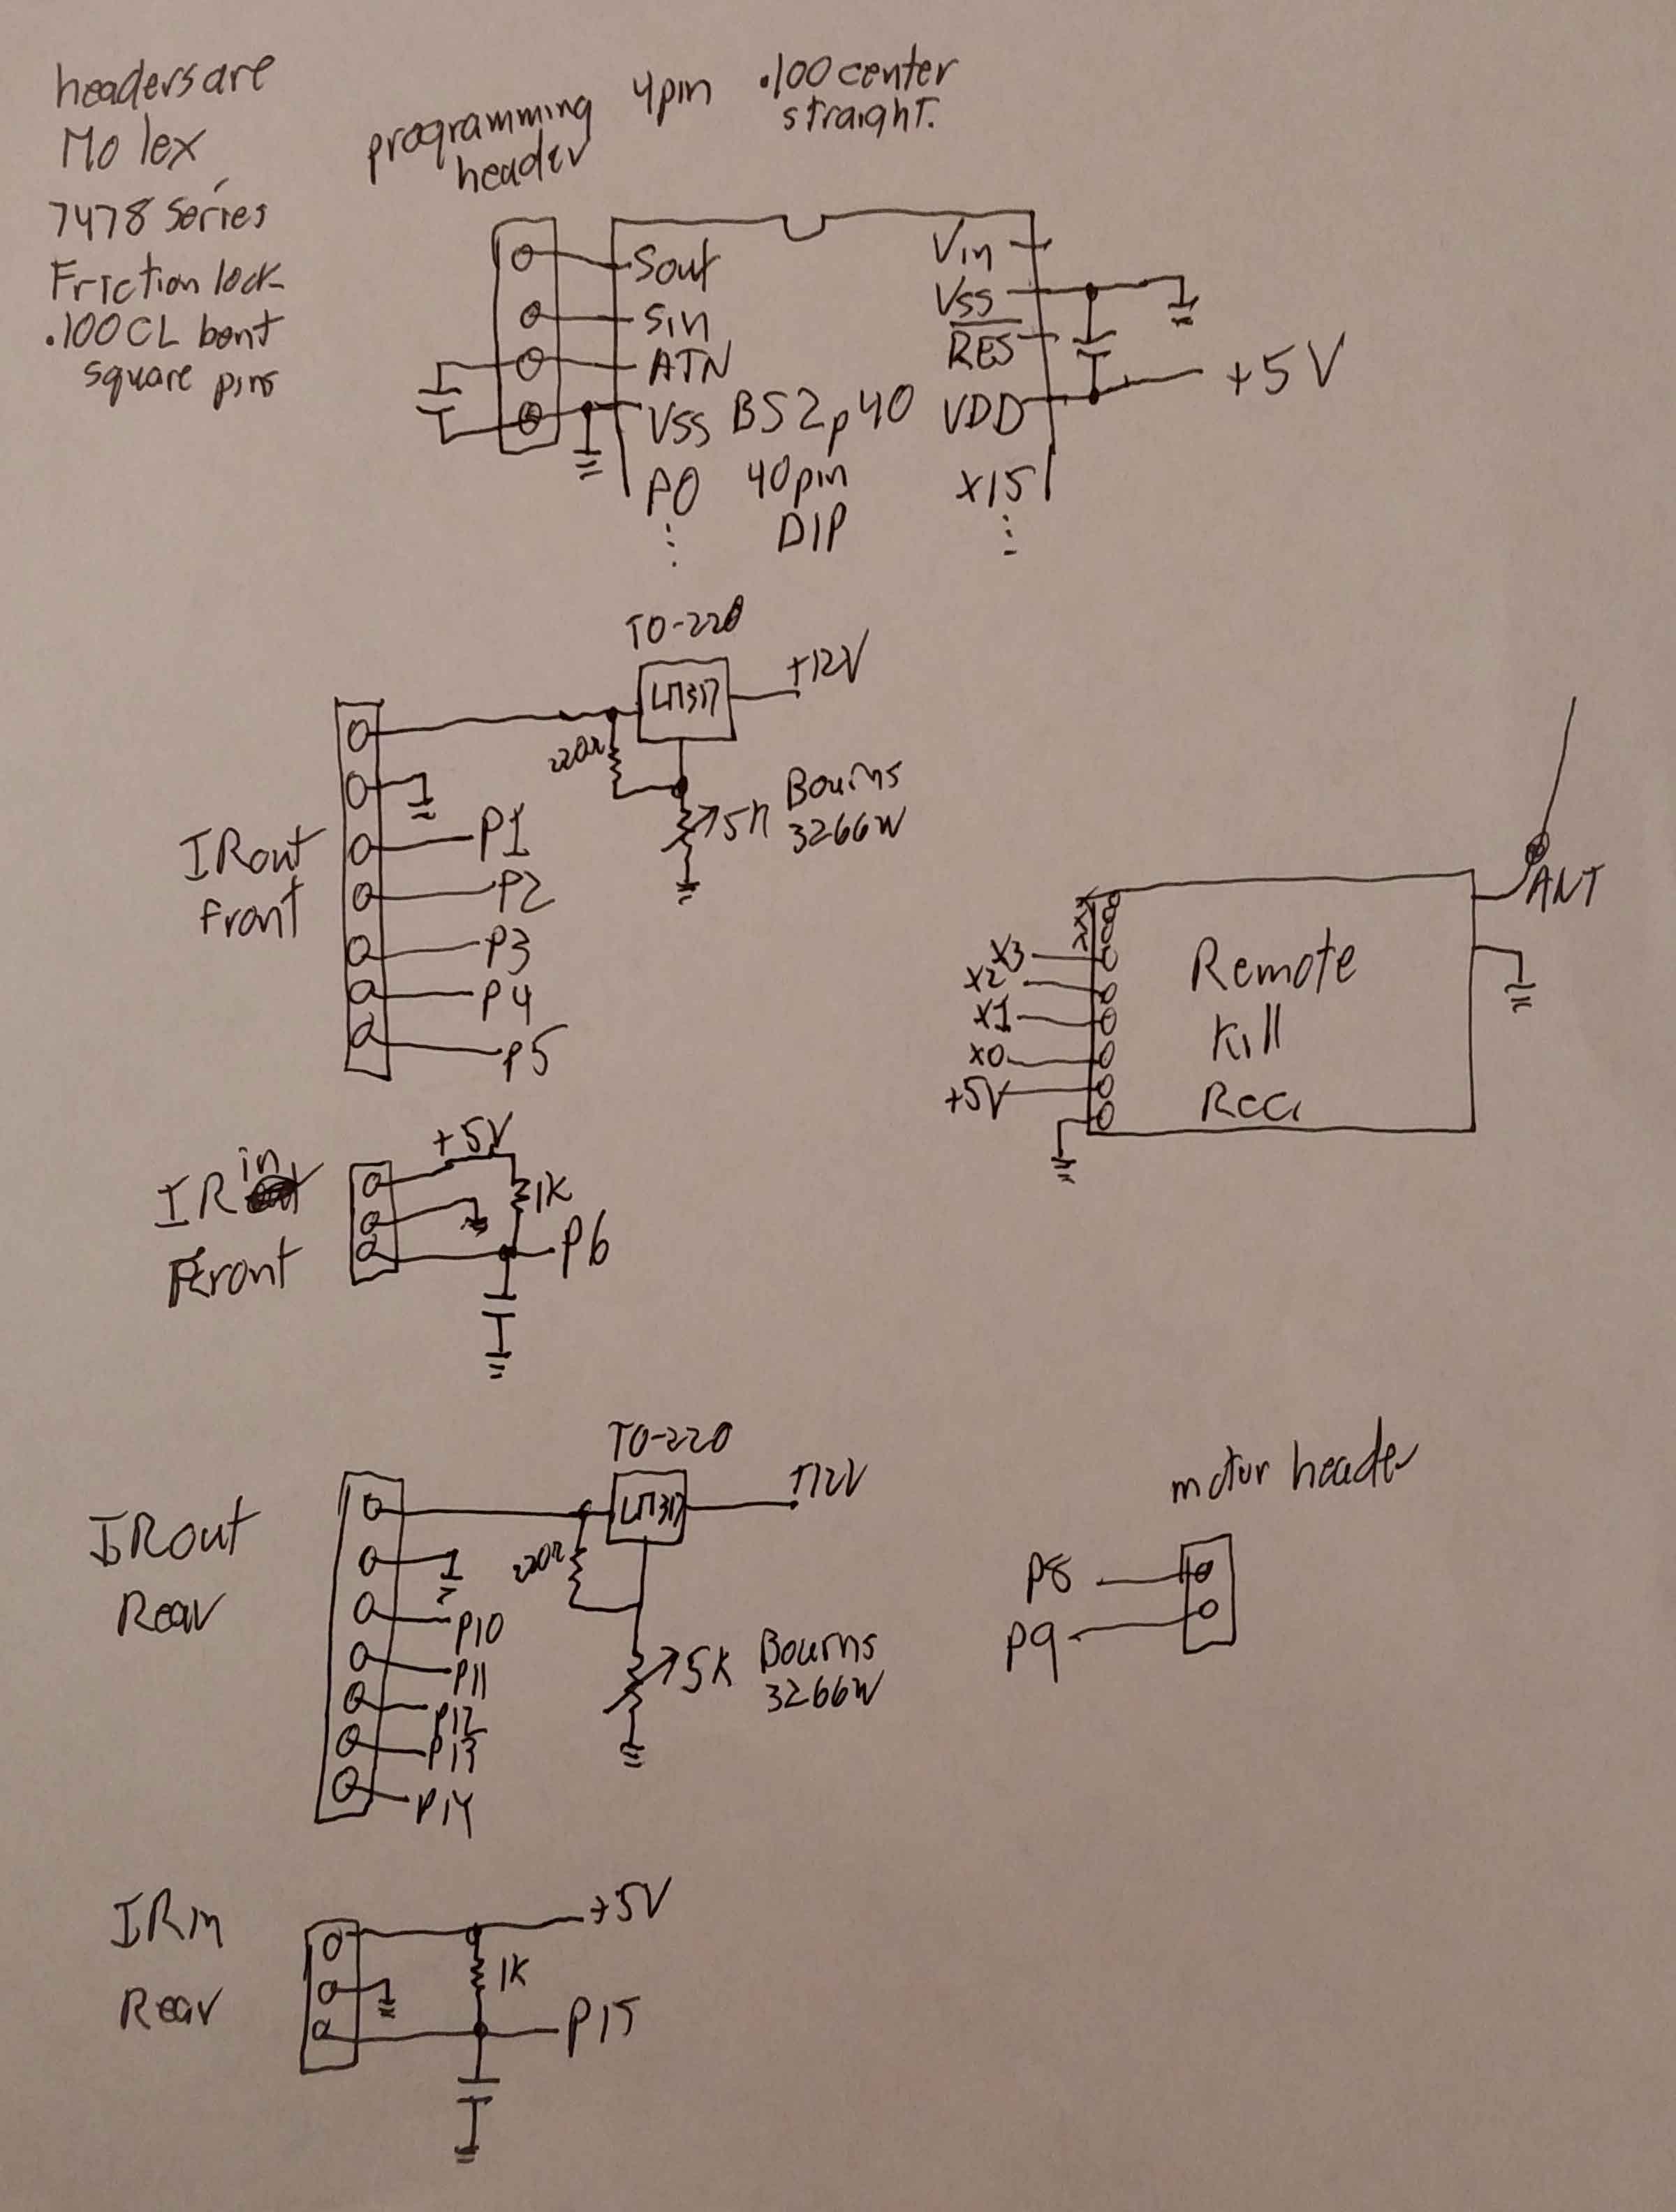 headers are
Molex
7478 Series
Friction lock
.100 CL bent
square pins
programming
header
4pin .100 center
straight.
Sout
Sin
ATN
VSS
P0
BS2p40
40pin
DIP
Vin
VSS
RES
VDD
X15
+5V
TO-220
LM317
+12V
220Ω
5K
Bourns
3266W
IRout
Front
P1
P2
P3
P4
P5
ANT
Remote
Kill
X3
X2
X1
X0
+5V
IR in
Front
+5V
1K
P6
TO-220
LM317
+12V
220Ω
5K
Bourns
3266W
IRout
Rear
P10
P11
P12
P13
P14
motor header
P8
P9
IRin
Rear
+5V
1K
P15